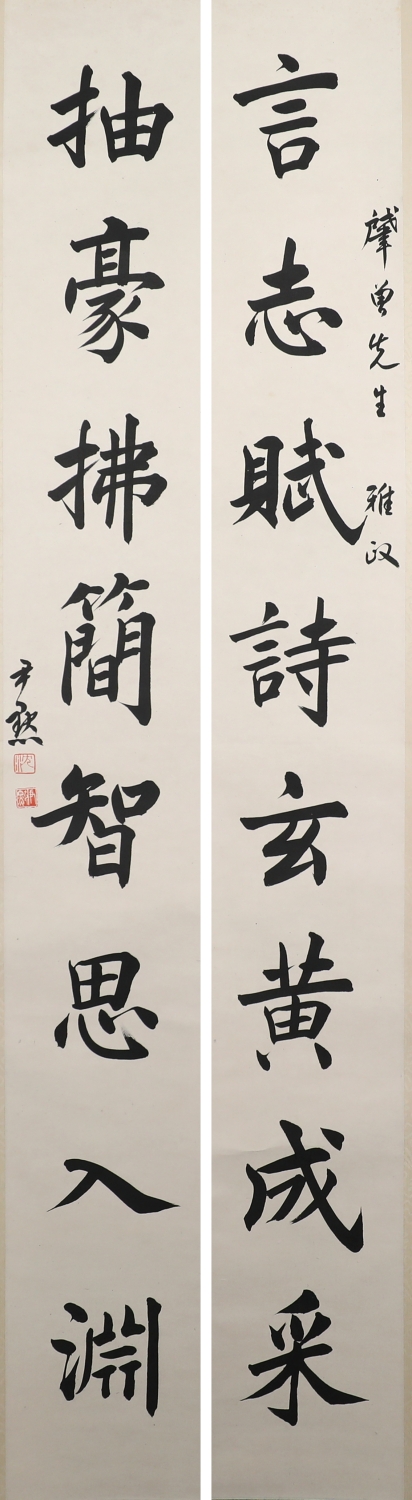 肇曾先生 雅政
言志賦詩玄黃成采
抽豪拂簡智思入淵
尹默